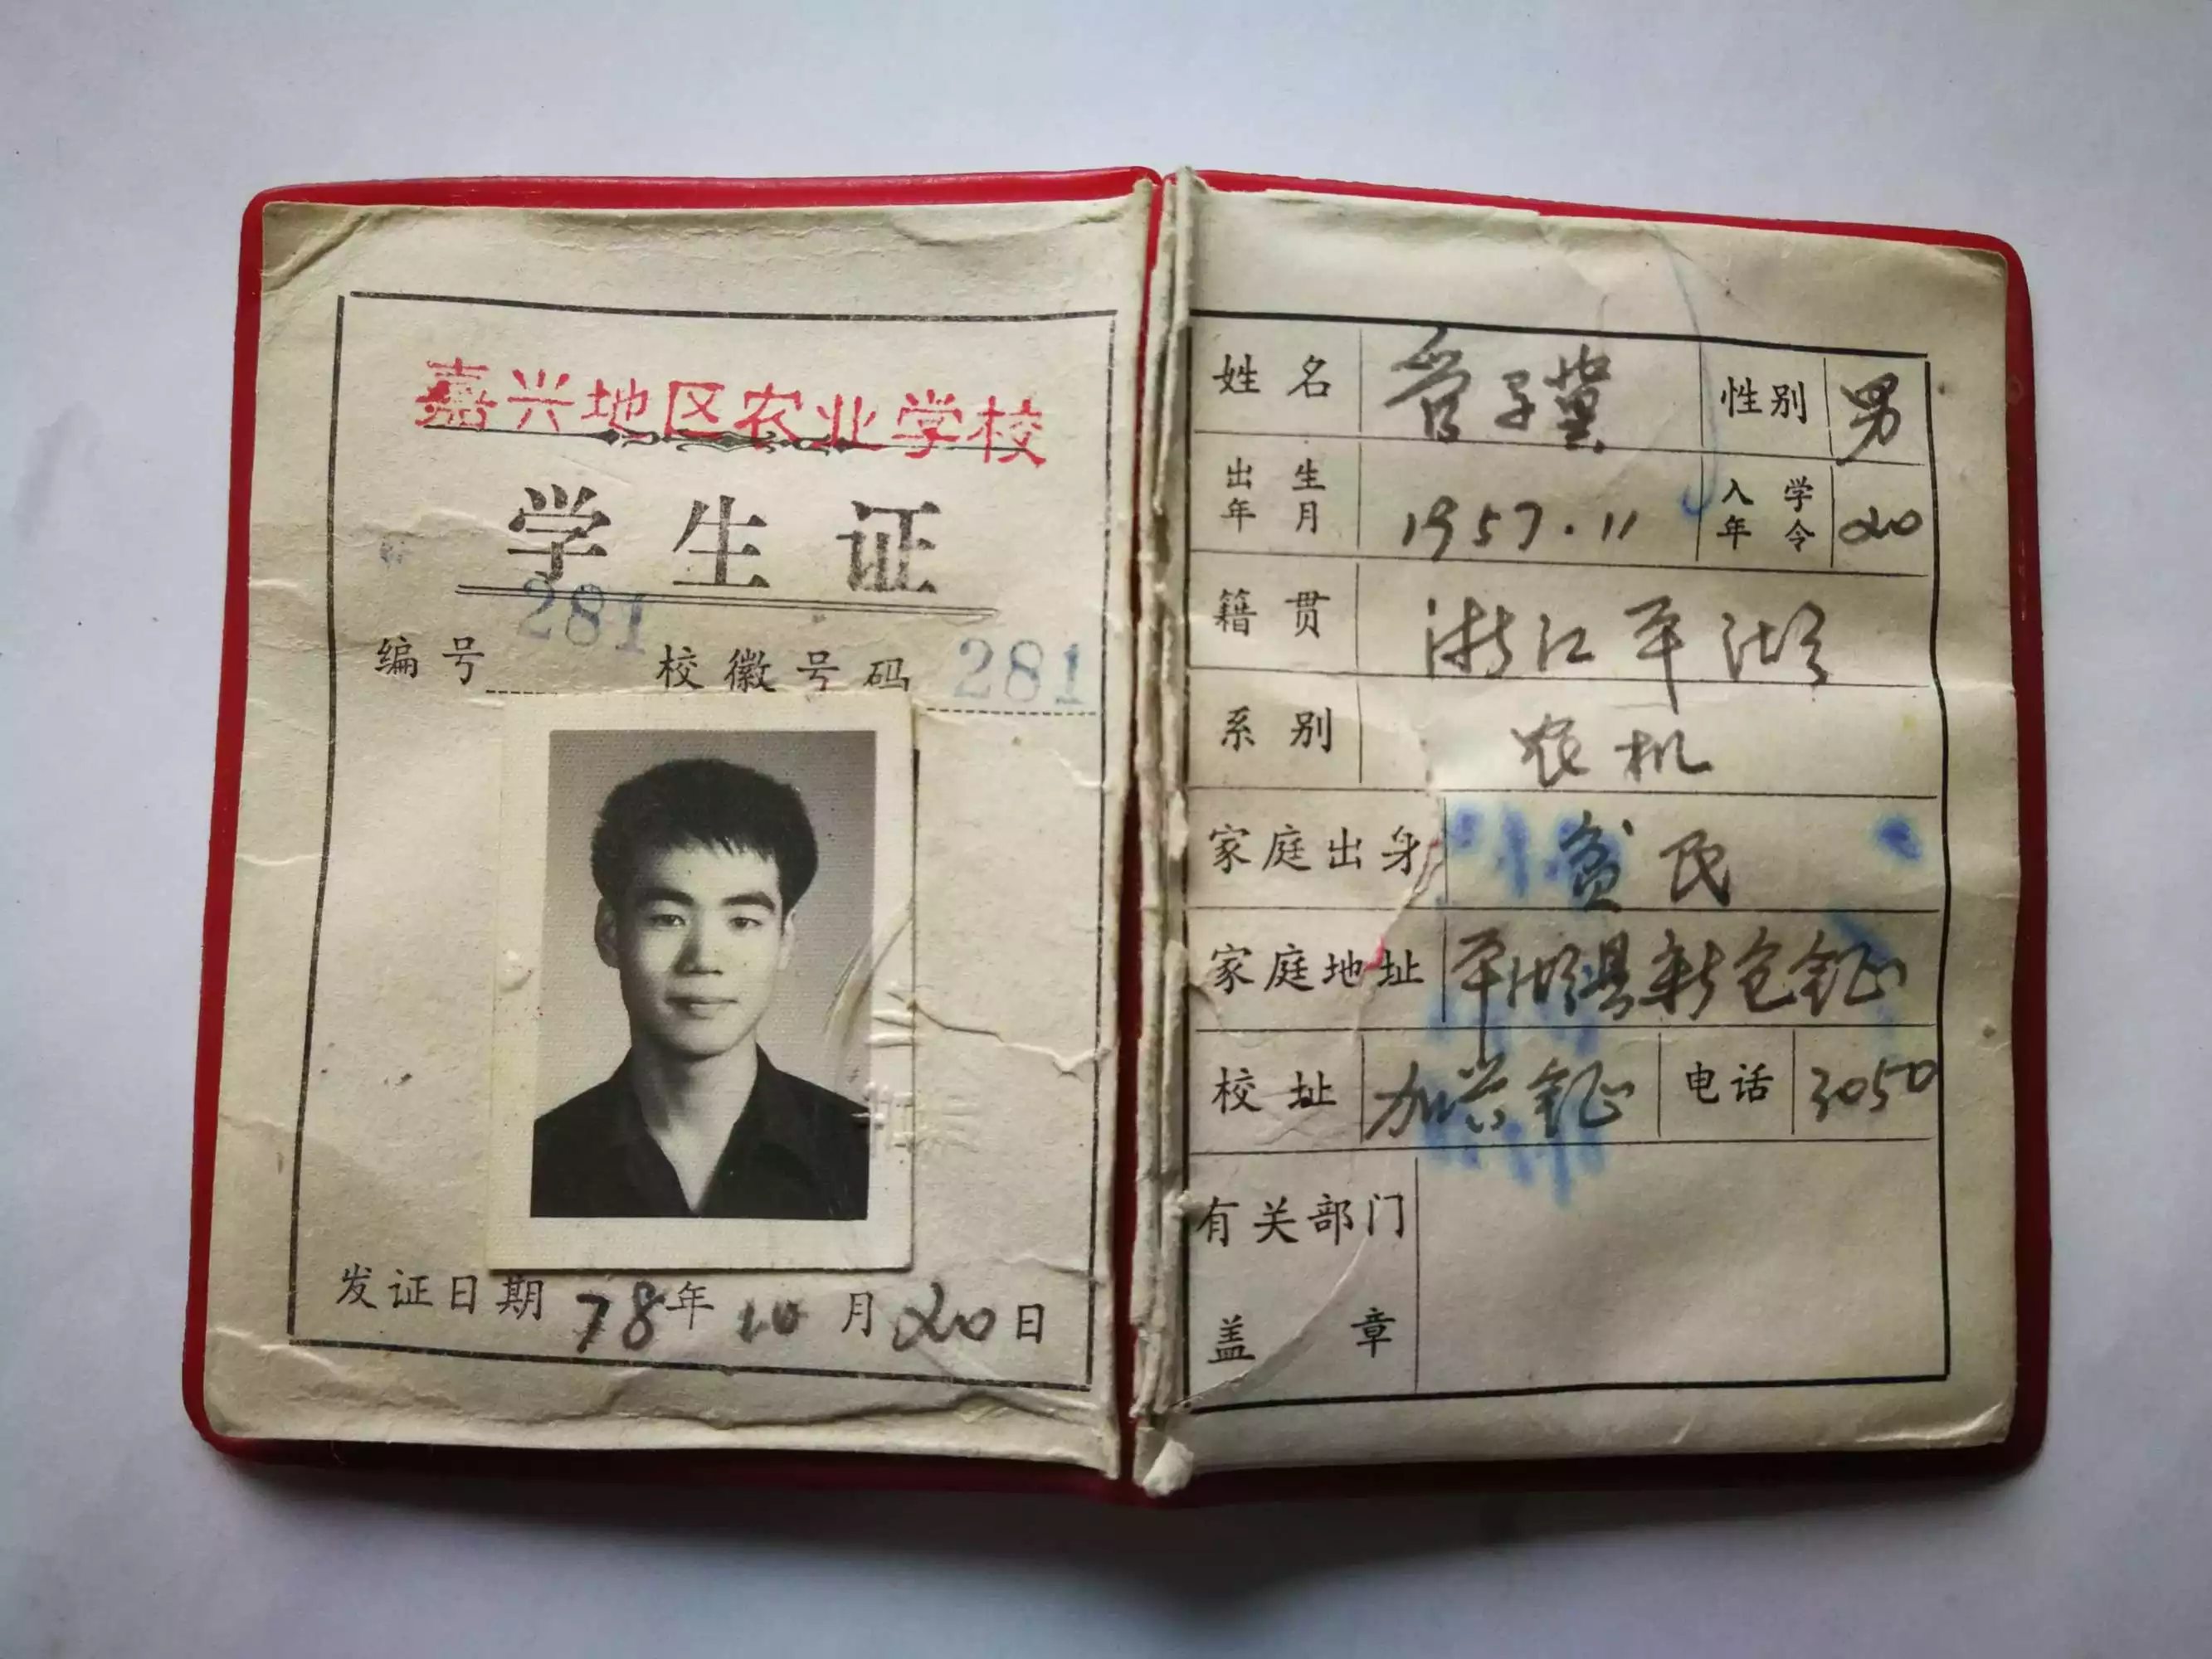 嘉兴地区农业学校
学生证
编号 281 校徽号码 281
发证日期 78年 10 月 20 日
姓名 管子冀 性别 男
出生年月 1957.11 入学年令 20
籍贯 浙江平湖
系别 农机
家庭出身 贫民
家庭地址 平湖县新仓镇
校址 加兴镇 电话 3050
有关部门
盖章